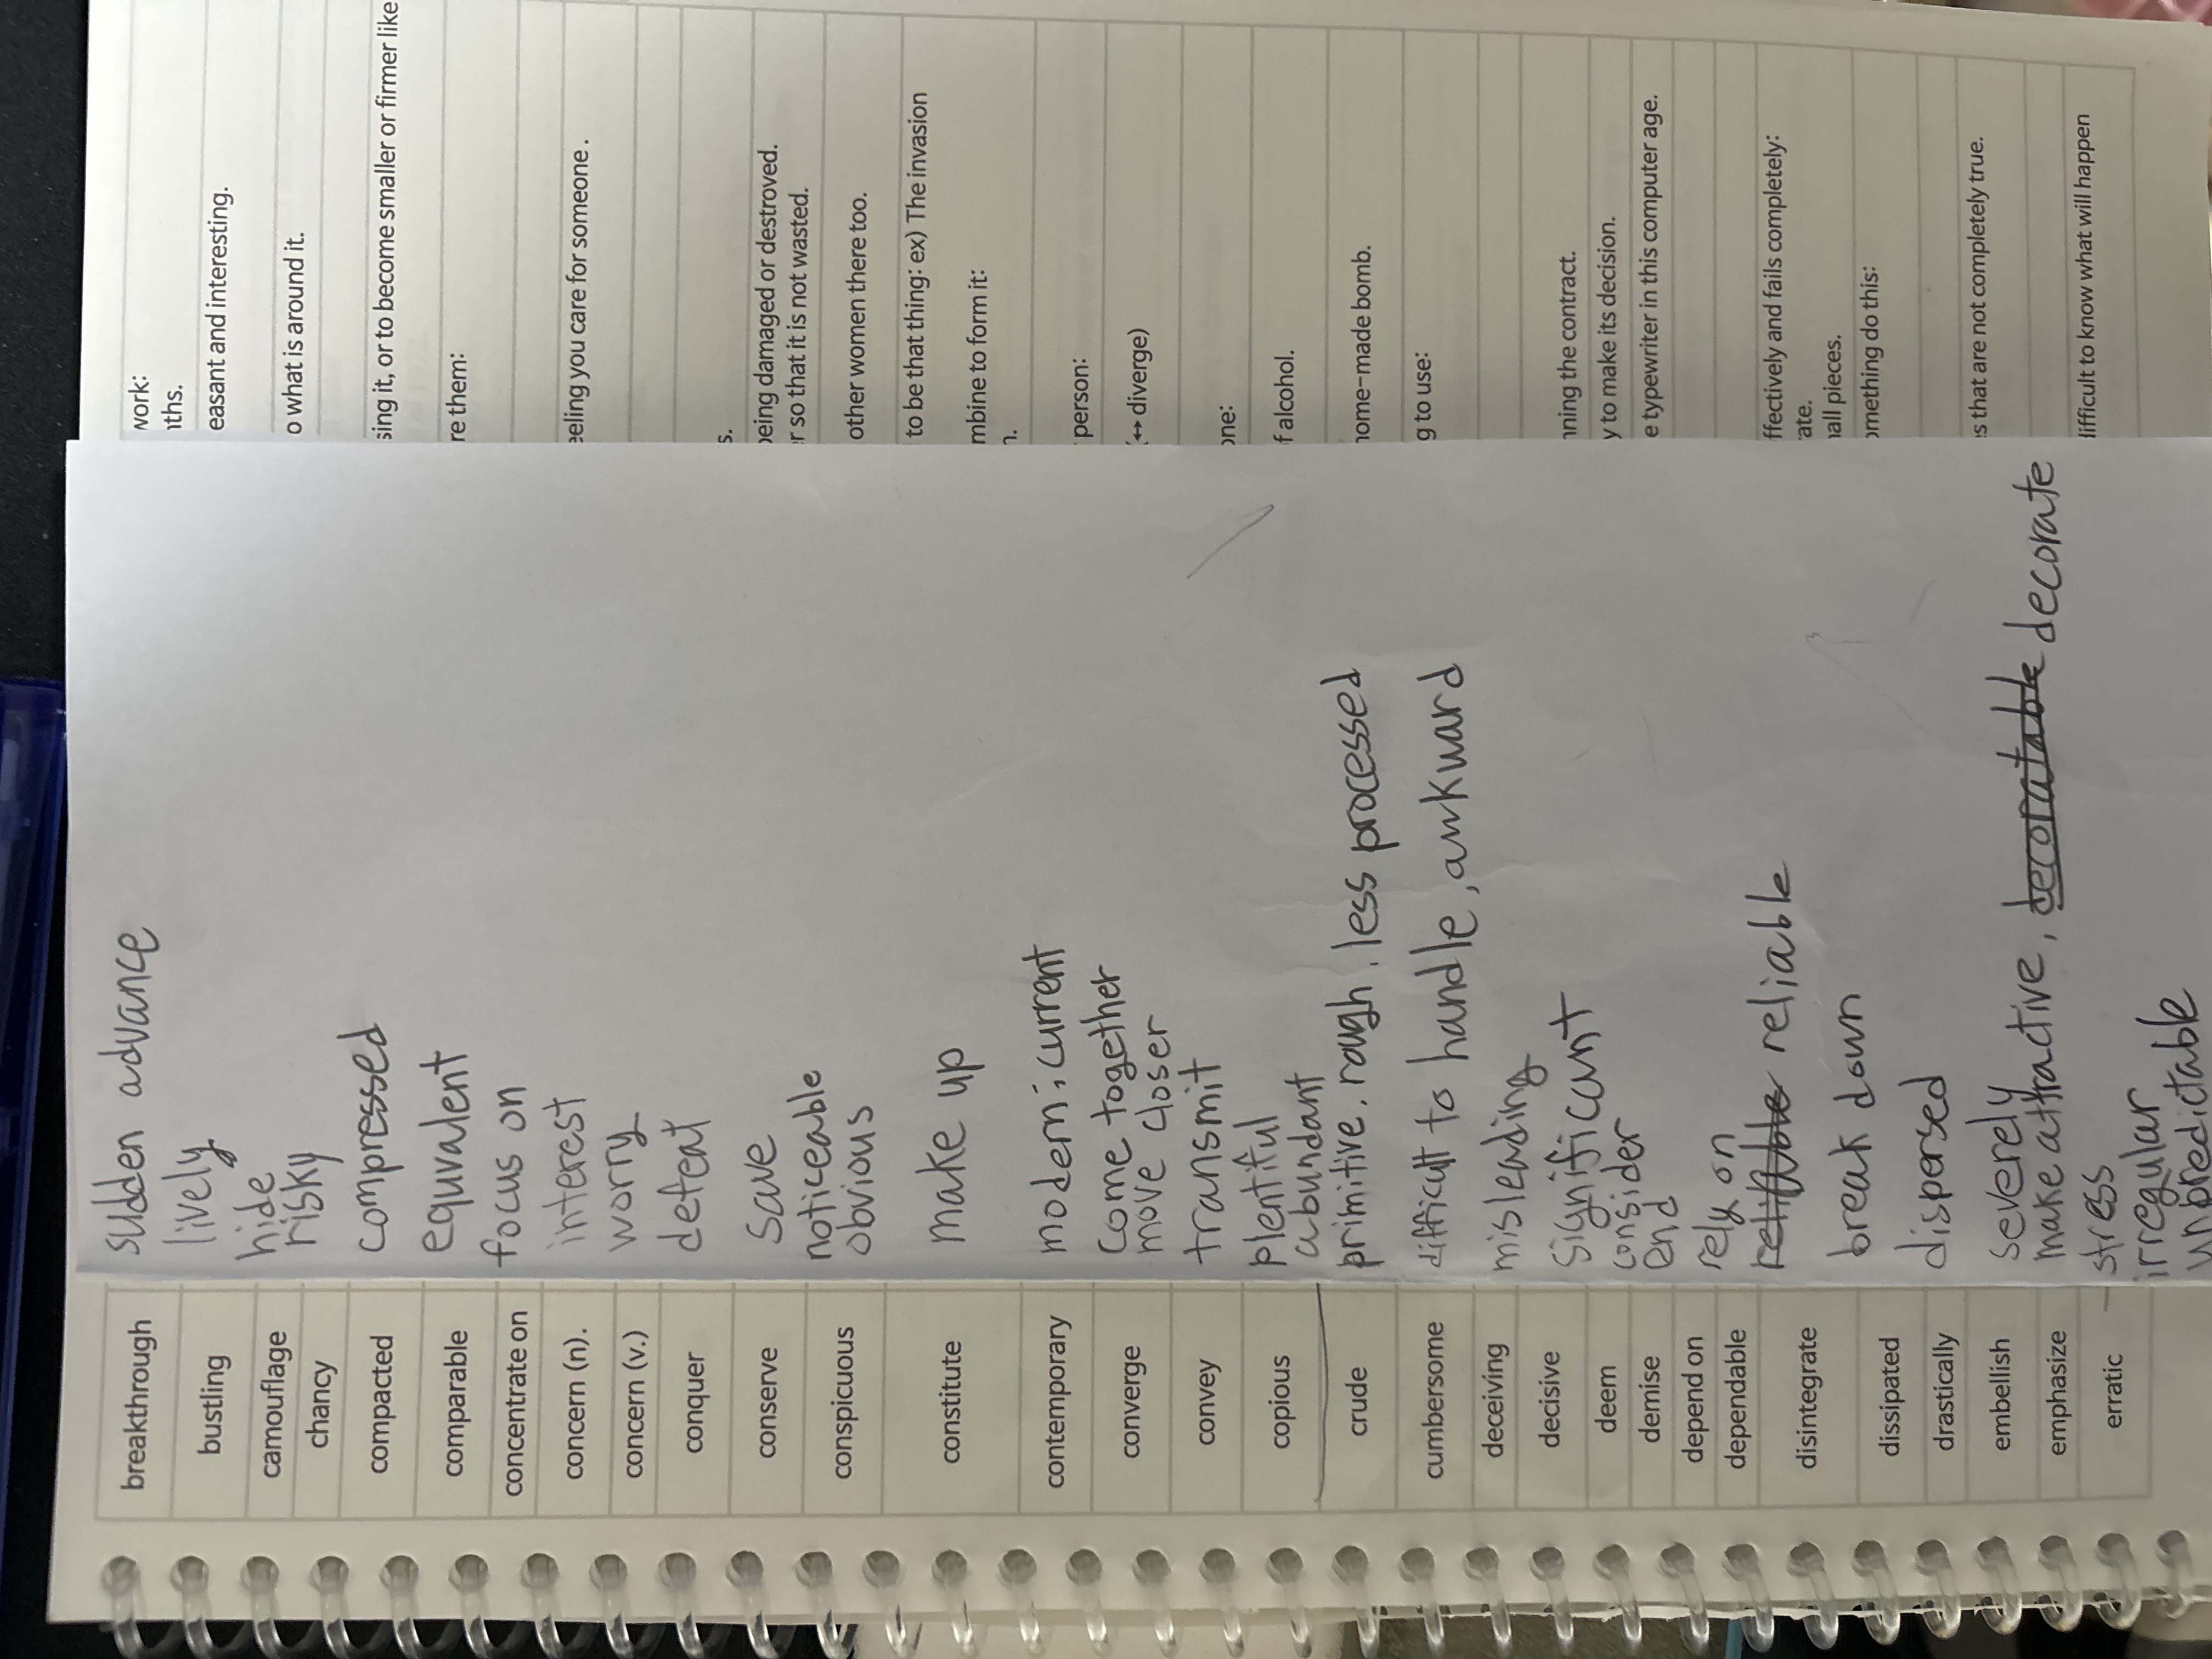 breakthrough sudden advance work:
ths.
bustling lively easant and interesting.
camouflage hide o what is around it.
chancy risky
compacted compressed sing it, or to become smaller or firmer like
comparable equivalent re them:
concentrate on focus on
concern (n). interest eeling you care for someone.
concern (v.) worry
conquer defeat s.
conserve save being damaged or destroyed.
r so that it is not wasted.
conspicuous noticeable other women there too.
obvious
constitute make up to be that thing: ex) The invasion
mbine to form it:
n.
contemporary modern; current person:
converge come together (↔ diverge)
move closer
convey transmit one:
copious plentiful f alcohol.
abundant
crude primitive, rough, less processed home-made bomb.
cumbersome difficult to handle, awkward g to use:
deceiving misleading
decisive significant nning the contract.
deem consider y to make its decision.
demise end e typewriter in this computer age.
depend on rely on
dependable reliable
disintegrate break down ffectively and fails completely:
ate.
all pieces.
dissipated dispersed omething do this:
drastically severely
embellish make attractive, decorate s that are not completely true.
emphasize stress
erratic irregular difficult to know what will happen
unpredictable